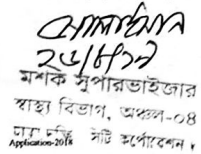 ২৬/৮/১৮
মশক সুপারভাইজার
স্বাস্থ্য বিভাগ, অঞ্চল-০৪
ঢাকা দক্ষিণ সিটি কর্পোরেশন।
Application-2018